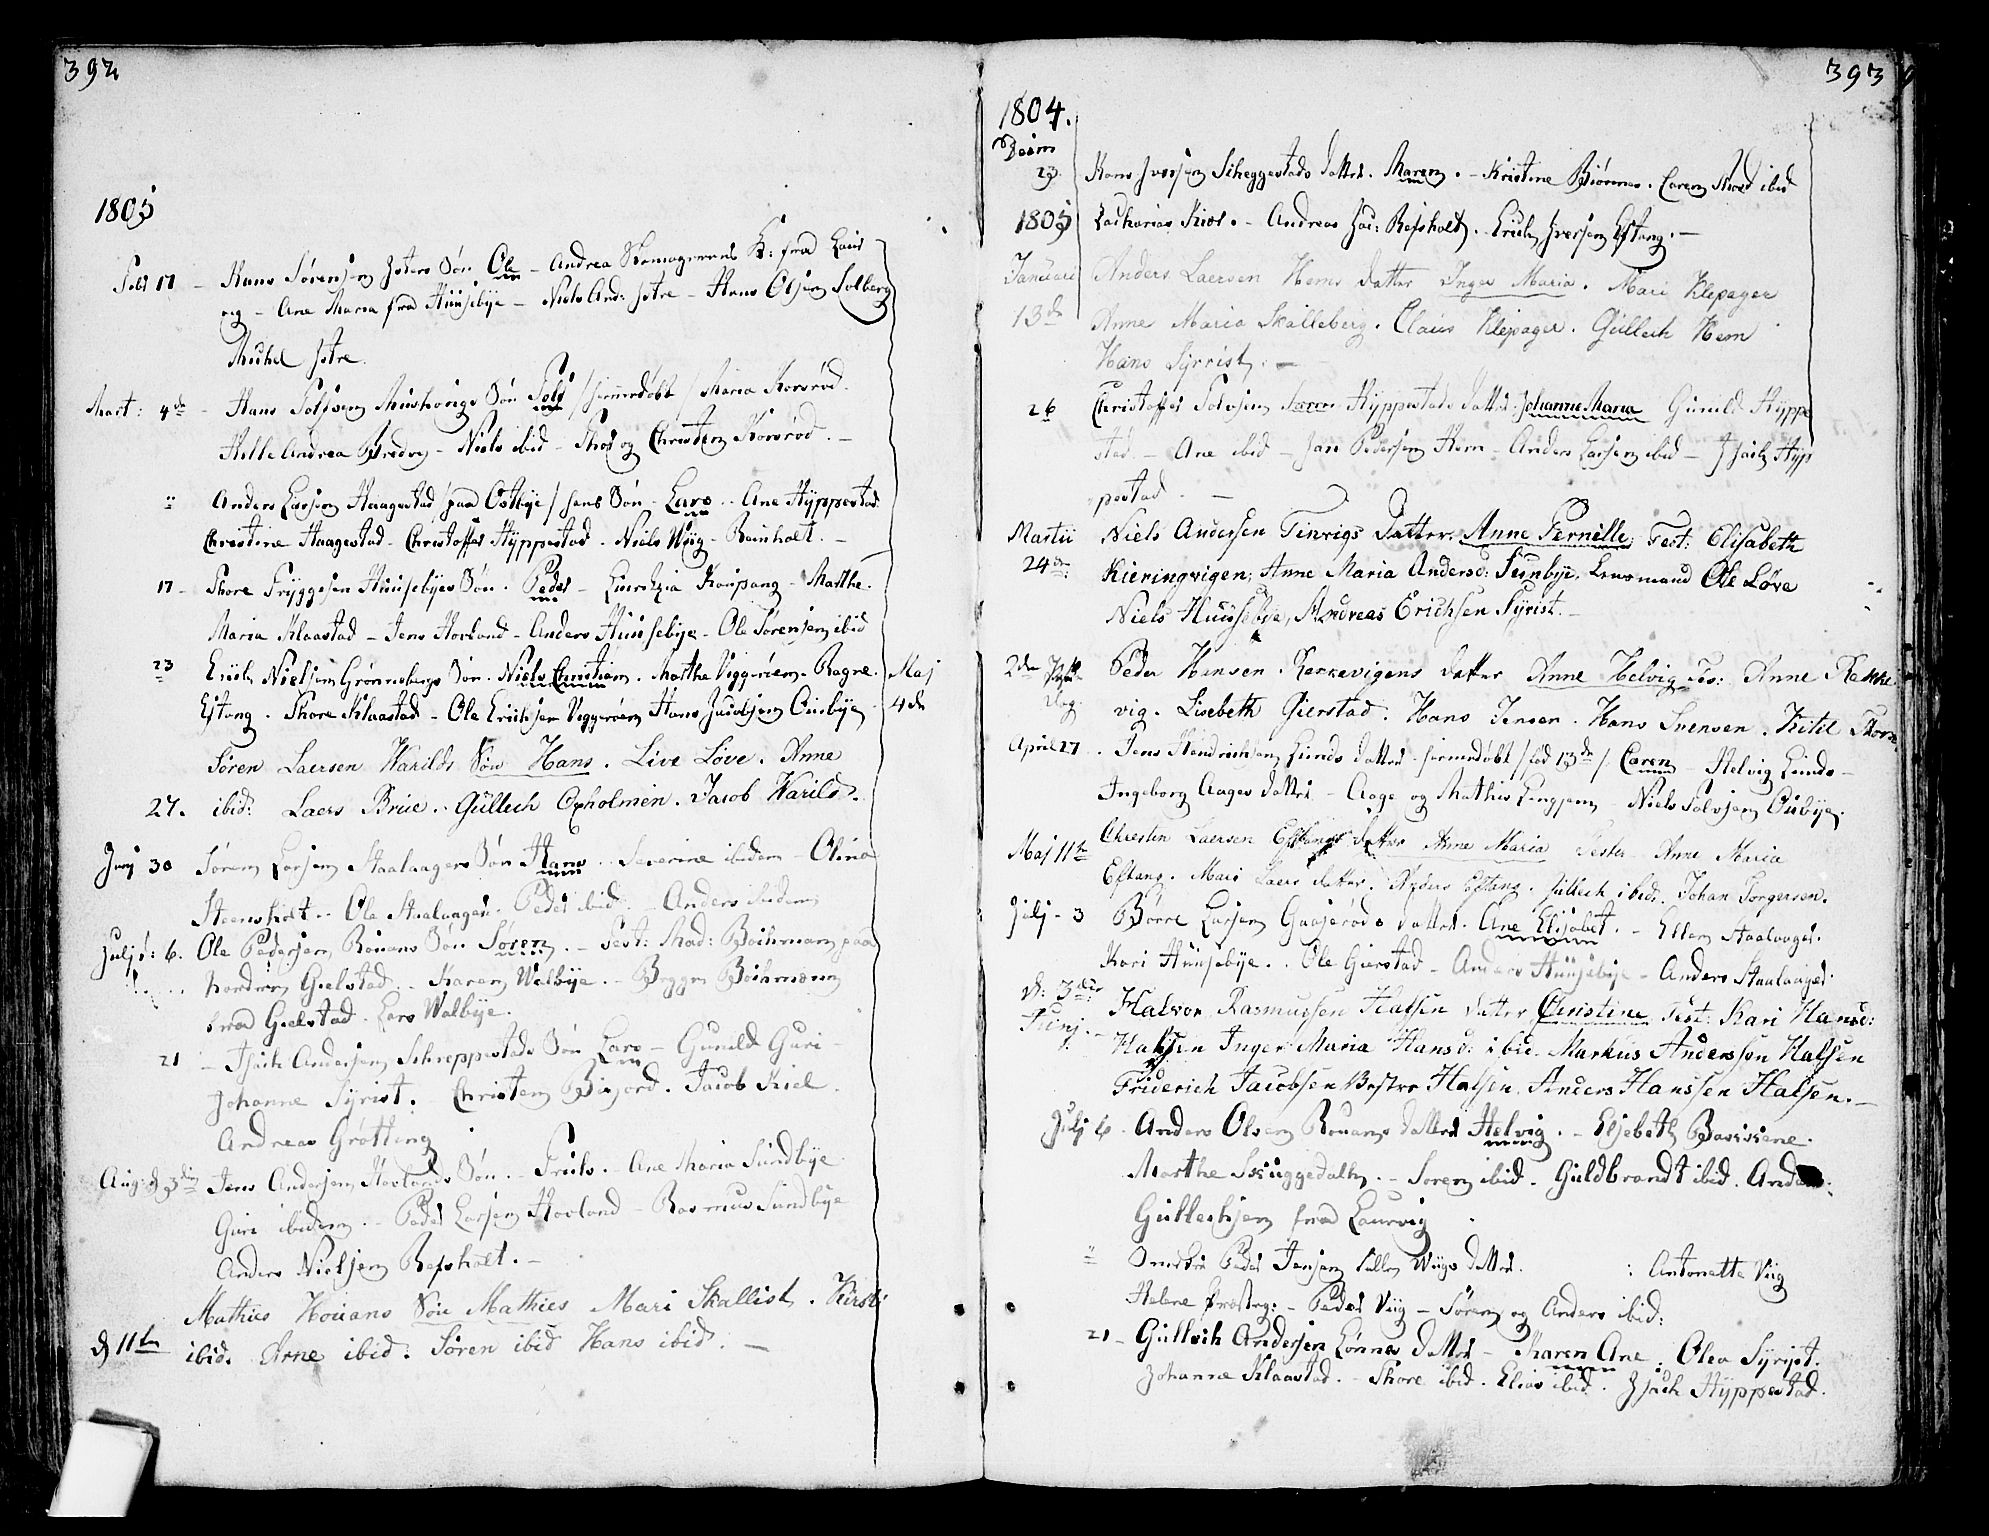 392
1805
Febr 17 - Hans Sörensen Jstres Sön Ole - Andrea Skomagerens K: fra Laur
og - Ane Maria fra Huusebye - Niels And: Jstre - Hans Olsen Solberg
Michel Jstre.
Mart: 4de - Hans Sön / hiemedöbt / Maria Korsröd.
Helle Andrea - Niels ibid - Thor og Christen Korsröd. -
" Anders Larsen Haagestad / paa Ostbye / hans Sön - Lars - Ane Hÿppestad
Christine Haagestad - Christoffer Hÿppestad - Niels Wiig - Reinholt. -
17 - Thore Trÿggesen Huusebyes Sön. Peder - Kaupang - Marthe.
Maria Klaastad - Jens Hovland - Anders Huusebÿe - Ole Sörensen ibid
23 Erich Nielsen Grönnebergs Sön. Niels Christian. Marthe Viggeröen. Ragne. Maj
Eftang. Thore Klaastad - Ole Erichsen Viggeröen Hans Ouibÿe - 4de
Sören Laersen Varilds Sön Hans. Live Löve. Anne
27. ibid: Laers Brue. Gullech Oxholmen. Jacob Varild.
Junj 30 Sören Larsen Staalaagers Sön Hans. Severine ibidem - Olina
Steensholt. Ole Staalaager. Peder ibid. - Anders ibidem
Julj d: 6. Ole Pedersen Rauans Sön Sören. - Test: Mad: Bochman paa
Nordren Gielstad. - Karen Walbÿe. - Brÿgger Bochmann
fra Gielstad. Lars Walbÿe.
21 - Jsach Andersen Schreppestads Sön Lars - Gunild Guri -
Johanne Sÿrist. - Christen Bisjord. Jacob Kiel.
Andreas Grötting
Aug: d 3die Jens Andersen Hovlands Sön. - Truls. - Ane Maria Sundbÿe.
Guri ibidem. - Peder Larsen Hovland - Rasmus Sundbÿe
Anders Nielsen Refsholt. -
Mathies Houans Sön Mathies Mari Skallist. Kirsti
d 11te ibid. Arne ibid. Sören ibid Hans ibid. -
393
1804.
Decem
23. Hans Jversen Scheggestads datter. Maren. - Kristine Biönnes. Caren ibid
1805 Zacharias Kiös. - Andreas Jac: Refsholt. Erich Jversen Eftang. -
Januari Anders Laersen Hems datter Inger Maria. Mari Klepager
13de Anne Maria Skalleberg. Claus Klepager. Gullech Hem
Hans Syrrist. -
26 Christoffer Tolvsen Hÿppestads datter. Johanne Maria Gunild Hÿppe
stad. - Ane ibid - Jan Pedersen Hem - Anders Larsen ibid - Jsach Hÿp
pestad. -
Martii Niels Andersen Tinvigs Datter. Anne Pernille, Test: Elisabeth
24de: Kieringvigen, Anne Maria Andersd: Sunbÿe, Lensmand Ole Löve
Niels Huusebÿe, Andreas Erichsen Sÿrist. -
2den Paaske Peder Hansen Rekkevigens datter Anne Helvig Tes: Anne Rekke
dag. vig. Lisebeth Gierstad. Hans Jensen. Hans Svensen. Kitil
April 27. Jens Hendrichsen Lunds datter - hiemedöbt / föd 13de /. Caren - Helvig Lunds -
Ingeborg Aages datter - Aage og Mathis - Niels Tolvsen Ouibÿe.
Maj 11te Christen Laersen Eftangs datter Anne Maria Testes Anne Maria
Eftang. Mari Laers datter. Anders Eftang. Gullech ibid. Johan Jorgensen.
Julj - 3 Börre Larsen Gaaseröds datter. Ane Elisabet. - Ellen Staalaager.
Kari Huusebÿe. Ole Gierstad - Anders Huusebÿe - Anders Staalaager
d: 3die Halvor Rasmussen Halsen datter Christine Test: Kari Hansd:
Junj. - Halsen Inger Maria Hansd: ibid. Markus Anderssön Halsen
Friderich Jacobsen Halsen. Anders Hanssen Halsen. -
Julj 6. Anders Olsen Rouans datter Helvig. - Elsebeth
Marthe Skuggedalen. - Soren ibid. Guldbrandt ibid. Anders
Gullechsen fra Laurvig
" Peder Jensen Wiigs datter. : Antonette Viig
Helene - Peder Viig - Sören og Anders ibid:
21 - Gullich Andersen Lönnes datter - Karen Ane: Olea Sÿrist.
Johanne Klaastad. - Thore ibid. Elias ibid. Jsach Hÿppestad.